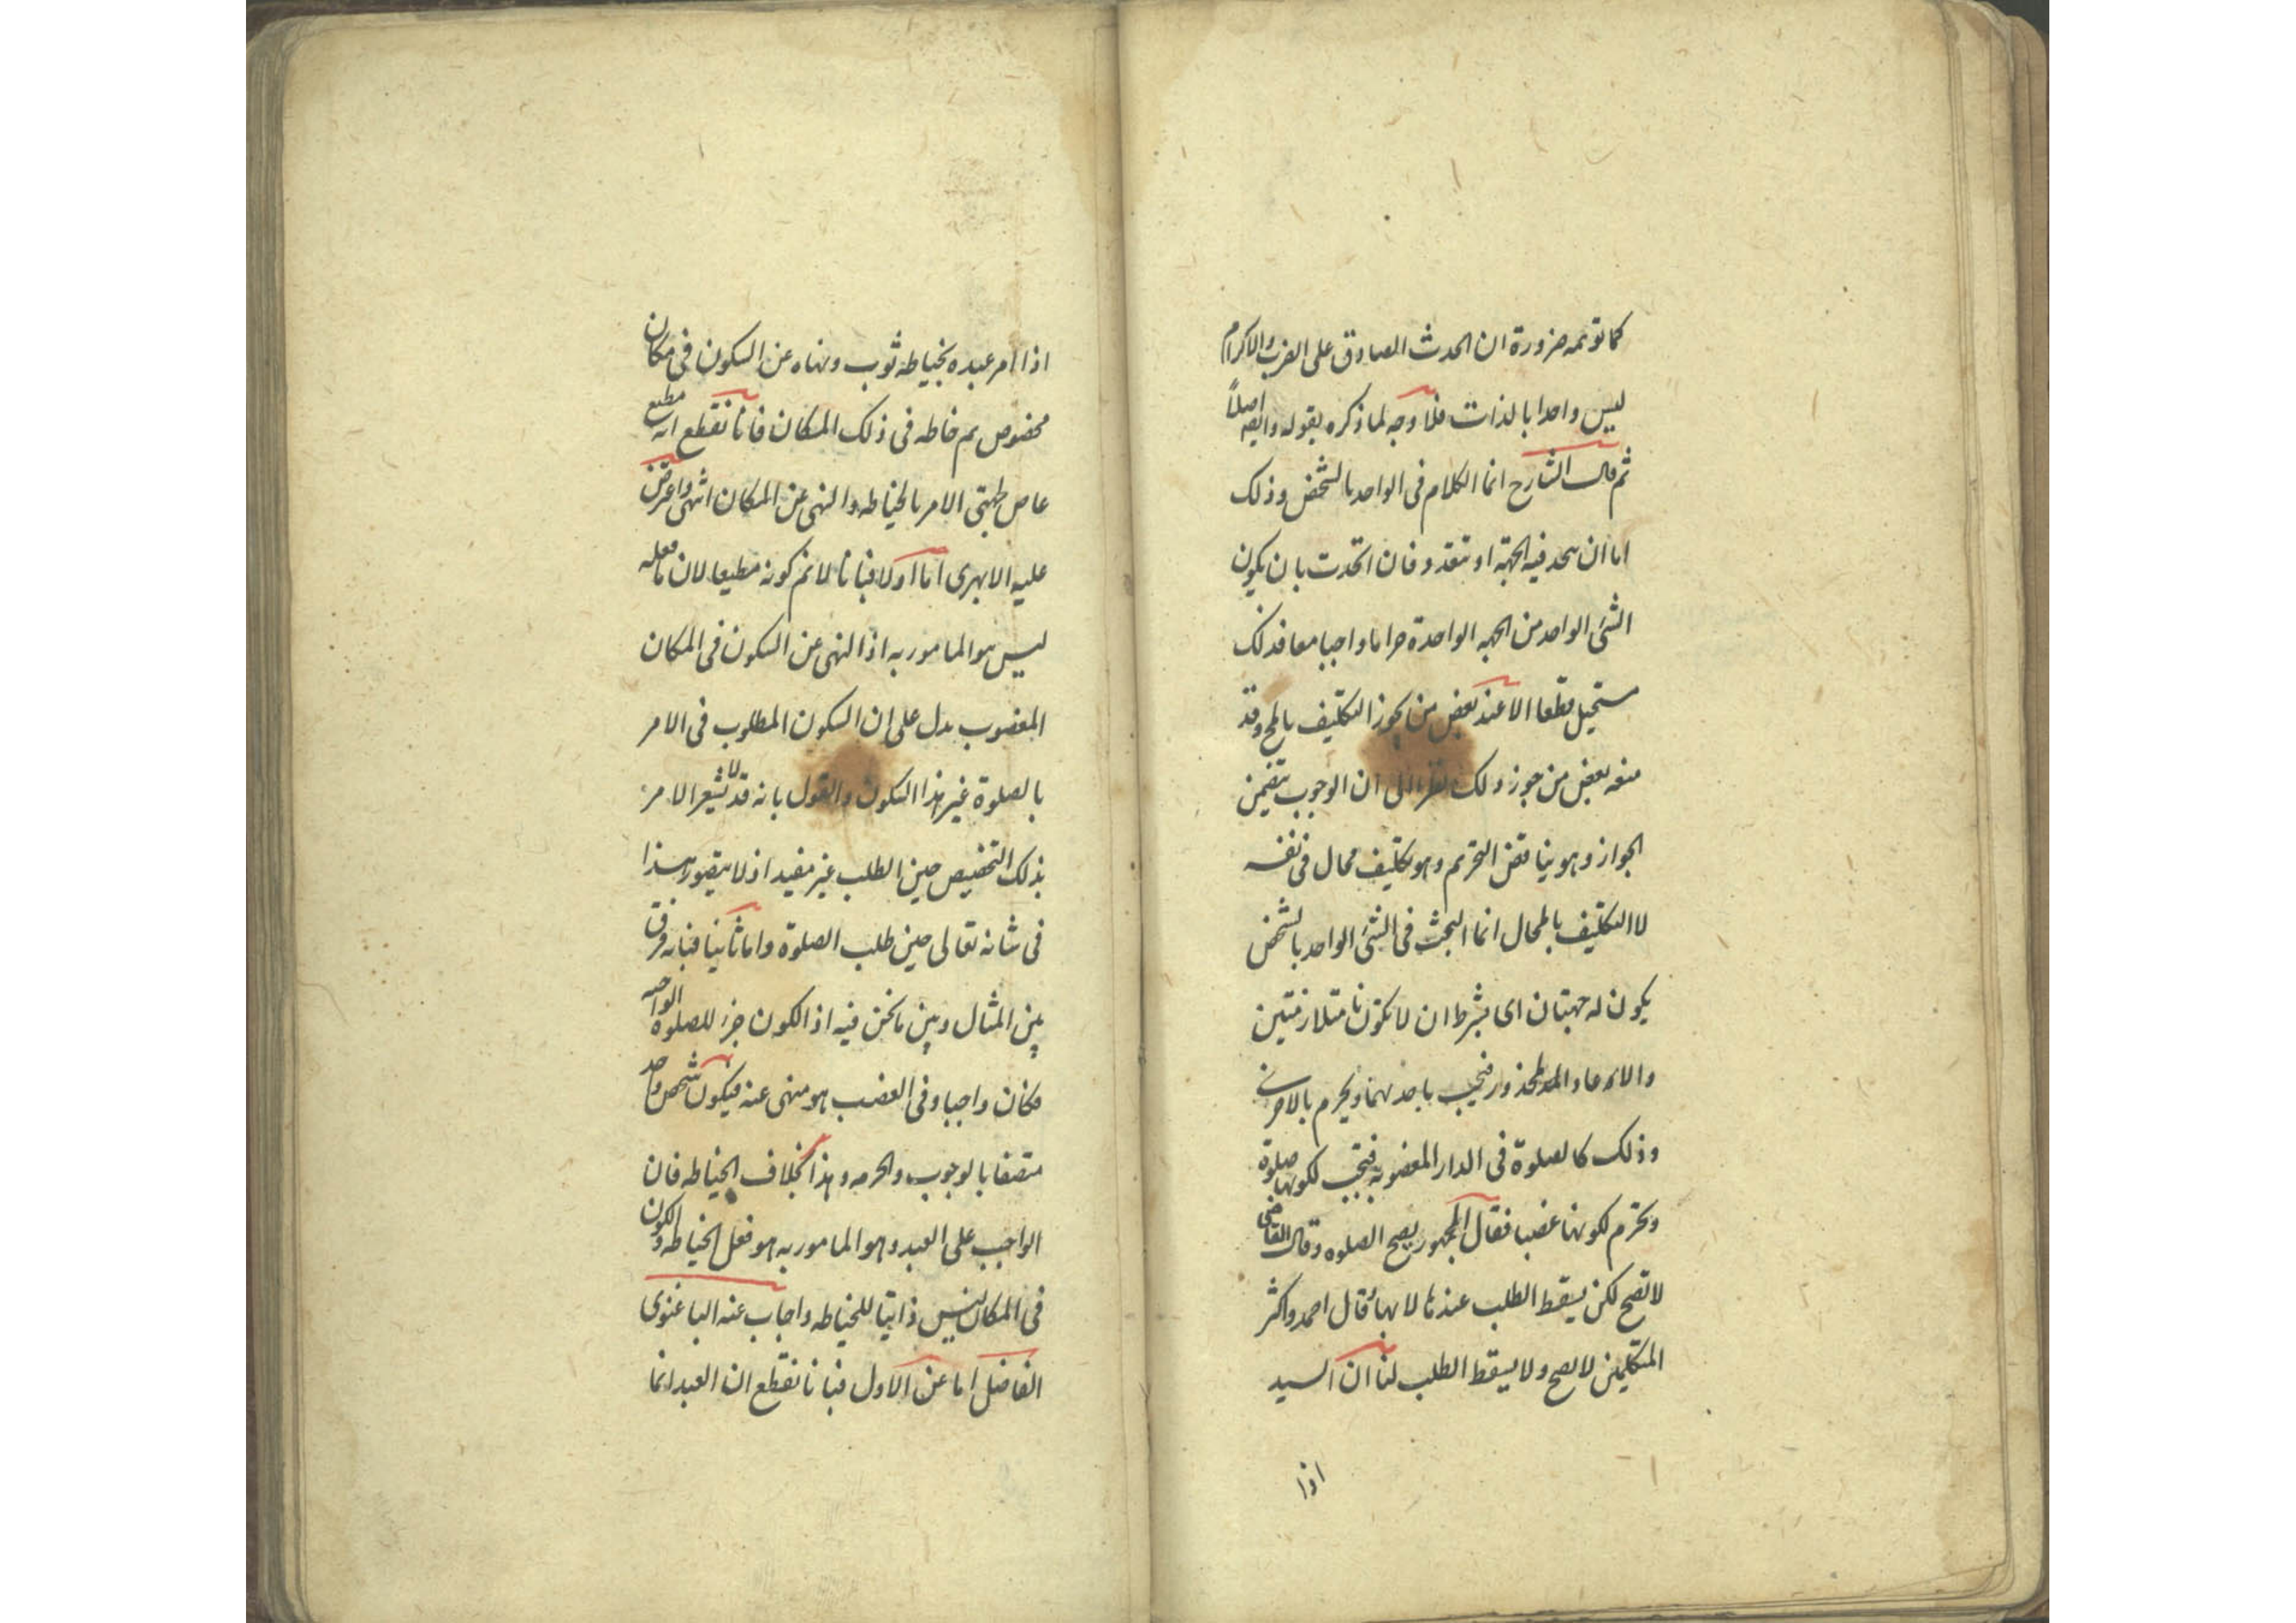 كما توهمه ضرورة ان الحدث الصادق على الضرب والاكرام
ليس واحدا بالذات فلا وجه لما ذكره بقوله وايضا اصلاً
ثم قال الشارح انما الكلام فى الواحد بالشخص وذلك
اما ان يتحد فيه الجهة او تتعدد فان اتحدت بان يكون
الشئ الواحد من الجهه الواحدة حراما واجبا معا فذلك
مستحيل قطعا الا عند بعض من يجوز التكليف بالمح وقد
منعه بعض من جوز ذلك نظرا الى ان الوجوب يتضمن
الجواز وهو يناقض التحريم وهو تكليف محال فى نفسه
لا التكليف بالمحال انما البحث فى الشئ الواحد بالشخص
يكون له جهتان اى بشرط ان لا تكونا متلازمتين
والا لعاد المحذور فيجب باحدهما ويحرم بالاخرى
وذلك كالصلوة فى الدار المغضوبه فتجب لكونها صلوة
وتحرم لكونها غضبا فقال الجمهور يصح الصلوه وقال القاضى
لا تصح لكن يسقط الطلب عندها لا بها وقال احمد واكثر
المتكلمين لا يصح ولا يسقط الطلب لنا ان السيد
اذا
اذا امر عبده بخياطه ثوب ونهاه عن السكون فى مكان
مخصوص ثم خاطه فى ذلك المكان فانا نقطع انه مطيع
عاص لجهتى الامر بالخياطه والنهى عن المكان انتهى واعترض
عليه الابهرى اما اولا فبانا لا نم كونه مطيعا لان ما فعله
ليس هو المامور به اذ النهى عن السكون فى المكان
المغضوب يدل على ان السكون المطلوب فى الامر
بالصلوة غير هذا السكون والقول بانه قد لا يشعر الامر
بذلك التخصيص حين الطلب غير مفيد اذ لا يتصور هذا
فى شانه تعالى حين طلب الصلوة واما ثانيا فبانه فرق
بين المثال وبين ما نحن فيه اذ الكون جزء للصلوه الواجبه
فكان واجبا وفى الغضب هو منهى عنه فيكون شخص واحد
متصفا بالوجوب والحرمه وهذا بخلاف الخياطه فان
الواجب على العبد وهو المامور به هو فعل الخياطه والكون
فى المكان ليس ذاتيا للخياطه واجاب عنه الباغنوى
الفاضل اما عن الاول فبانا نقطع ان العبد انما